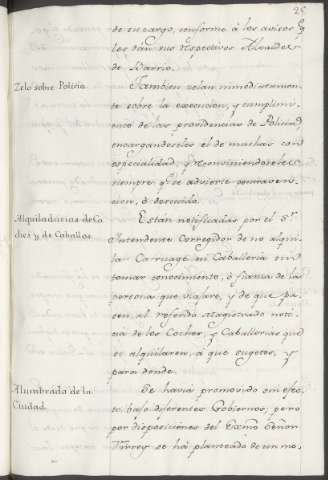 25
de su cargo, conforme á los avisos q.e
les dan sus respectivos Alcaldes
de Barrio.
Zelo sobre Policia.
Tambien zelan inmediatamen-
te sobre la execucion, y cumplimi-
ento de las providencias de Policia,
encargandoseles el de muchas con
especialidad, y reconviniendoseles
siempre q.e se advierte contraven-
cion, ó descuido.
Alquiladurias de Co-
ches y de Caballos.
Están notificadas por el S.r
Intendente Corregidor de no alqui-
la Carruage ni Caballeria sin
tomar conocimiento, ó fianza de la
persona que viajare, y de que pa-
sen al referido Magistrado noti-
cia de los Coches, y Caballerias que
se alquilaren, á que sugetos, y
para donde.
Alumbrado de la
Ciudad.
Se havia promovido sin efec-
to, bajo diferentes Gobiernos; pero
por disposiciones del Exmo Señor
se há planteado de un mo-